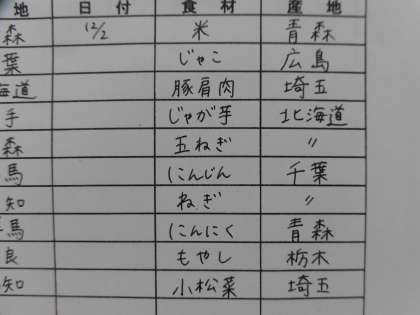 地 日付 食材 産地
森 12/2 米 青森
葉 じゃこ 広島
海道 豚肩肉 埼玉
手 じゃが芋 北海道
森 玉ねぎ 〃
馬 にんじん 千葉
知 ねぎ 〃
馬 にんにく 青森
良 もやし 栃木
知 小松菜 埼玉